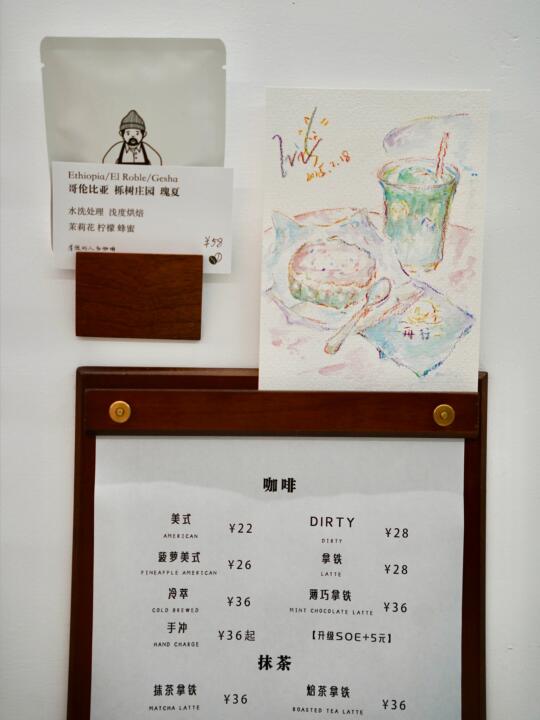 Ethiopia/El Roble/Gesha
哥伦比亚 栎树庄园 瑰夏
水洗处理 浅度烘焙
茉莉花 柠檬 蜂蜜
¥58
咖啡
美式 ¥22 DIRTY ¥28
AMERICAN DIRTY
菠萝美式 ¥26 拿铁 ¥28
PINEAPPLE AMERICAN LATTE
冷萃 ¥36 薄巧拿铁 ¥36
COLD BREWED MINT CHOCOLATE LATTE
手冲 ¥36起 【升级SOE+5元】
HAND CHARGE
抹茶
抹茶拿铁 ¥36 焙茶拿铁 ¥36
MATCHA LATTE ROASTED TEA LATTE